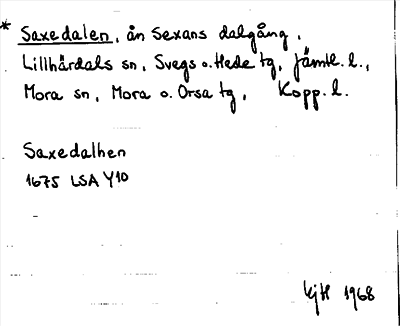 * Saxedalen, ån Sexans dalgång,
Lillhärdals sn, Svegs o. Hede tg, Jämtl. l.,
Mora sn, Mora o. Orsa tg, Kopp. l.
Saxedalhen
1675 LSA Y10
KJH 1968